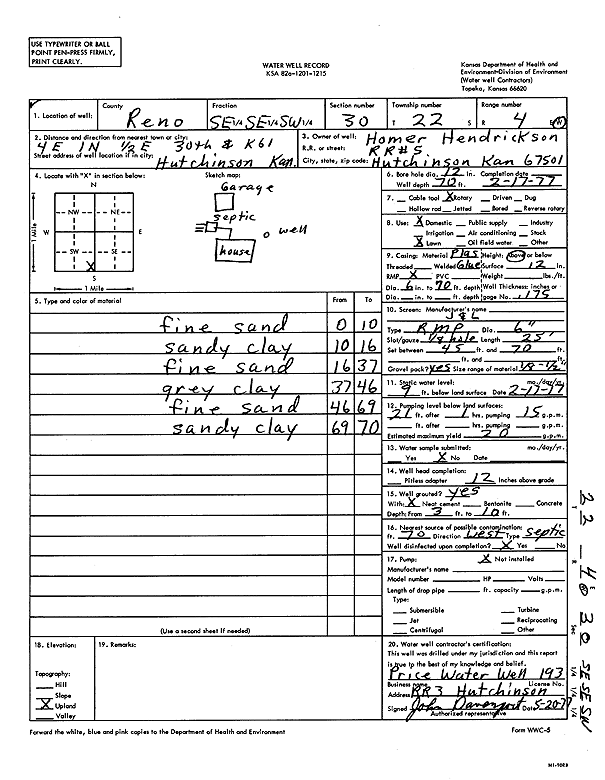 USE TYPEWRITER OR BALL
POINT PEN-PRESS FIRMLY,
PRINT CLEARLY.
WATER WELL RECORD
KSA 82a-1201-1215
Kansas Department of Health and
Environment-Division of Environment
(Water well Contractors)
Topeka, Kansas 66620
1. Location of well:
County Reno
Fraction SE 1/4 SE 1/4 SW 1/4
Section number 30
Township number T 22 S
Range number R 4 E/W
2. Distance and direction from nearest town or city:
4E 1N 1/2E 30th & K61
Street address of well location if in city:
Hutchinson Kan.
3. Owner of well: Homer Hendrickson
R.R. or street: RR#5
City, state, zip code: Hutchinson Kan 67501
4. Locate with "X" in section below:
N
NW NE
W E
SW SE
X
S
1 Mile
1 Mile
Sketch map:
Garage
septic
o well
house
5. Type and color of material From To
fine sand 0 10
sandy clay 10 16
fine sand 16 37
grey clay 37 46
fine sand 46 69
sandy clay 69 70
(Use a second sheet if needed)
6. Bore hole dia. 12 in. Completion date
Well depth 70 ft. 2-17-77
7. Cable tool X Rotary Driven Dug
Hollow rod Jetted Bored Reverse rotary
8. Use: X Domestic Public supply Industry
Irrigation Air conditioning Stock
X Lawn Oil field water Other
9. Casing: Material Plas Height: Above or below
Threaded Welded Glue Surface 12 in.
RMP X PVC Weight lbs./ft.
Dia. 6 in. to 70 ft. depth Wall Thickness: inches or
Dia. in. to ft. depth gage No. .175
10. Screen: Manufacturer's name
J & L
Type RMP Dia. 6"
Slot/gauze 1/8 hole Length 25'
Set between 45 ft. and 70 ft.
ft. and ft.
Gravel pack? yes Size range of material 1/8-1/2
11. Static water level: mo./day/yr.
9 ft. below land surface Date 2-17-77
12. Pumping level below land surfaces:
21 ft. after 1 hrs. pumping 15 g.p.m.
ft. after hrs. pumping g.p.m.
Estimated maximum yield 20 g.p.m.
13. Water sample submitted: mo./day/yr.
Yes X No Date
14. Well head completion:
Pitless adapter 12 Inches above grade
15. Well grouted? yes
With: X Neat cement Bentonite Concrete
Depth: From 3 ft. to 10 ft.
16. Nearest source of possible contamination:
ft. 70 Direction West Type Septic
Well disinfected upon completion? X Yes No
17. Pump: X Not installed
Manufacturer's name
Model number HP Volts
Length of drop pipe ft. capacity g.p.m.
Type:
Submersible Turbine
Jet Reciprocating
Centrifugal Other
18. Elevation:
Topography:
Hill
Slope
X Upland
Valley
19. Remarks:
20. Water well contractor's certification:
This well was drilled under my jurisdiction and this report
is true to the best of my knowledge and belief.
Price Water Well 193
Business name License No.
Address RR3 Hutchinson
Signed John Davenport Date 5-20-77
Authorized representative
Forward the white, blue and pink copies to the Department of Health and Environment
Form WWC-5